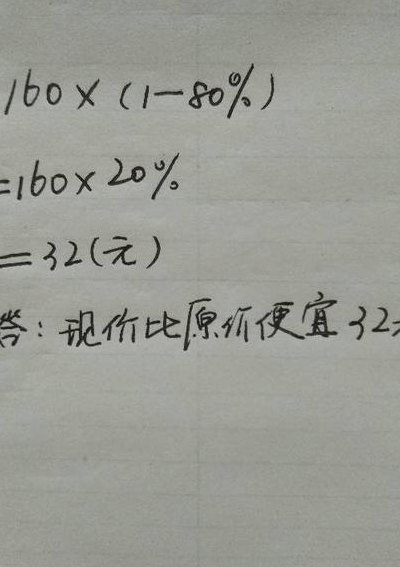 160×(1-80%)
=160×20%
=32(元)
答:现价比原价便宜32